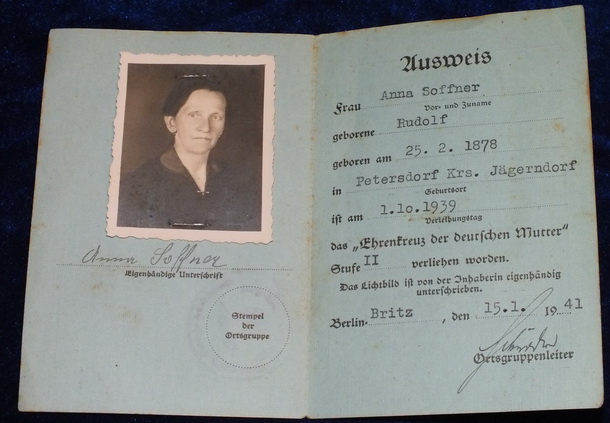 Anna Soffner
Eigenhändige Unterschrift
Stempel
der
Ortsgruppe
Ausweis
Frau Anna Soffner
Vor- und Zuname
geborene Rudolf
geboren am 25. 2. 1878
in Petersdorf Krs. Jägerndorf
Geburtsort
ist am 1.1o.1939
Verleihungstag
das „Ehrenkreuz der deutschen Mutter"
Stufe II verliehen worden.
Das Lichtbild ist von der Inhaberin eigenhändig
unterschrieben.
Berlin- Britz , den 15.1. 19 41
Ortsgruppenleiter